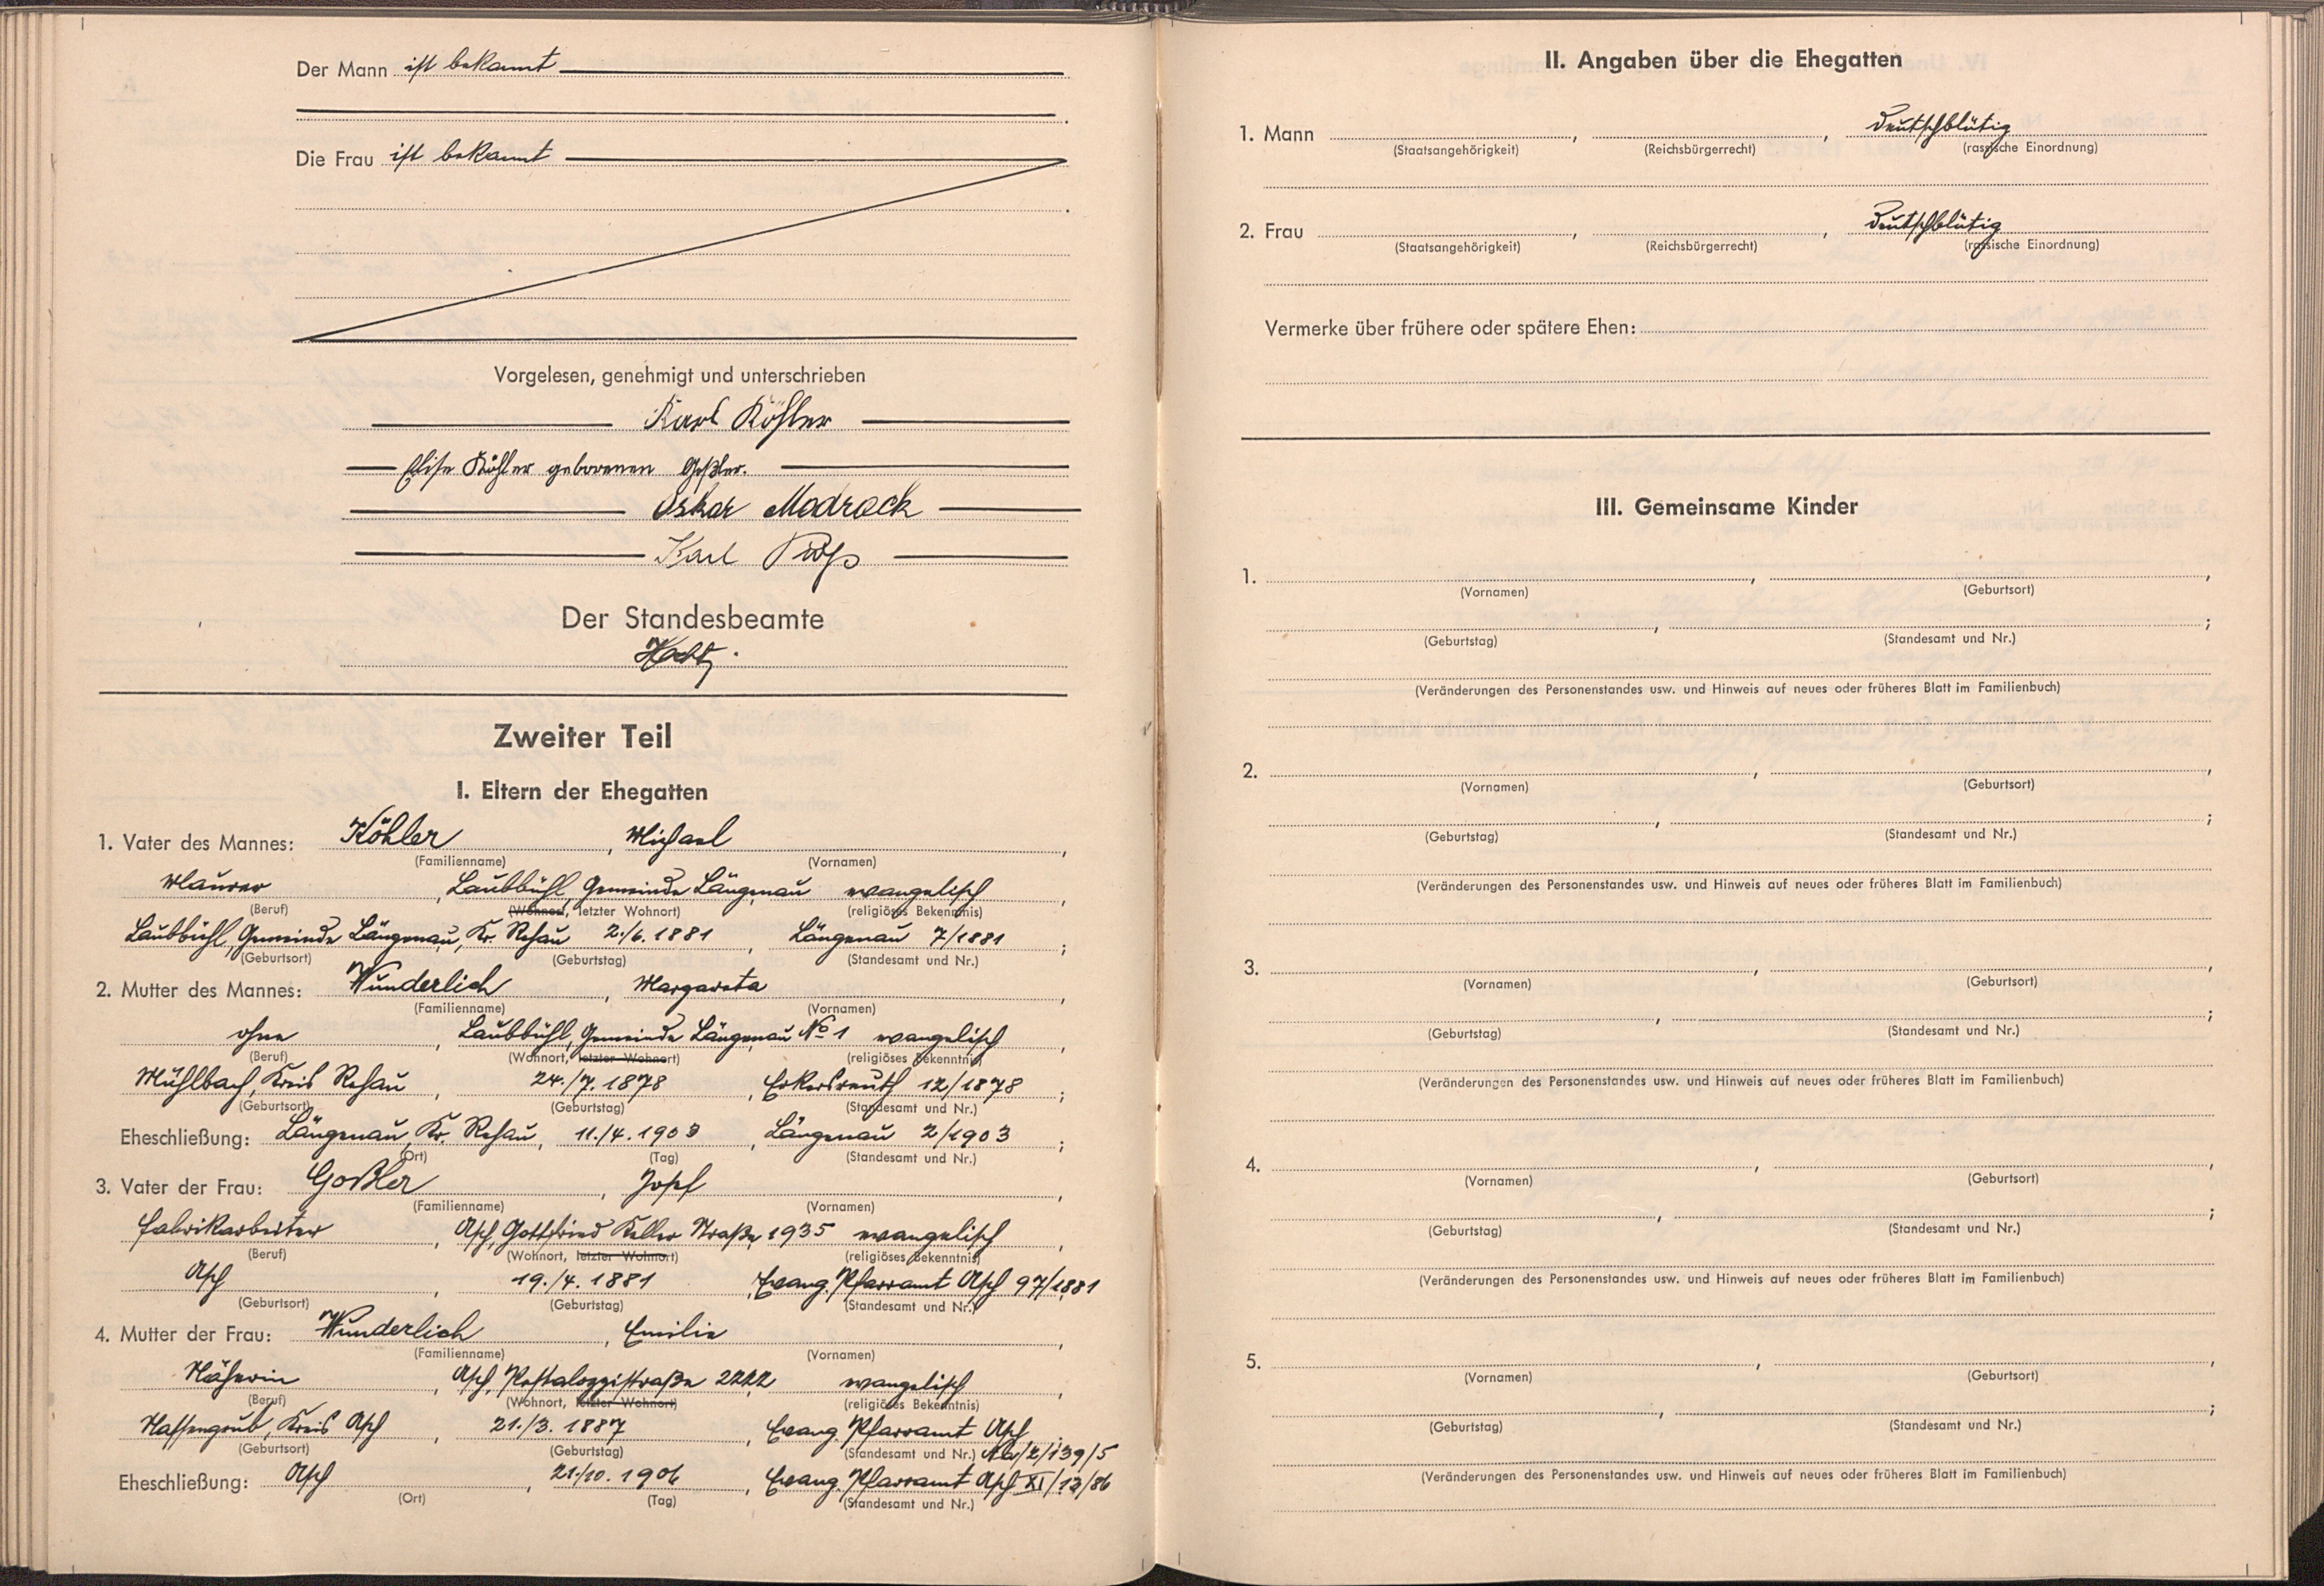 Der Mann ist bekannt
Die Frau ist bekannt
Vorgelesen, genehmigt und unterschrieben
Karl Köhler
Elise Köhler geborenen Goßler.
Oskar Modrack
Karl
Der Standesbeamte
Zweiter Teil
I. Eltern der Ehegatten
1. Vater des Mannes: Köhler, Michael,
(Familienname) (Vornamen)
Maurer, Laubbühl, Gemeinde Längenau evangelisch,
(Beruf) (Wohnort, letzter Wohnort) (religiöses Bekenntnis)
Laubbühl, Gemeinde Längenau, Kr. Rehau 2./6. 1881, Längenau 7/1881;
(Geburtsort) (Geburtstag) (Standesamt und Nr.)
2. Mutter des Mannes: Wunderlich, Margareta,
(Familienname) (Vornamen)
ohne, Laubbühl, Gemeinde Längenau No 1 evangelisch,
(Beruf) (Wohnort, letzter Wohnort) (religiöses Bekenntnis)
Mühlbach, Kreis Rehau, 24./7. 1878, Erkersreuth 12/1878;
(Geburtsort) (Geburtstag) (Standesamt und Nr.)
Eheschließung: Längenau, Kr. Rehau, 11./4. 1903, Längenau 2/1903;
(Ort) (Tag) (Standesamt und Nr.)
3. Vater der Frau: Goßler, Josef,
(Familienname) (Vornamen)
Fabrikarbeiter, Asch, Gottfried Keller Straße 1935 evangelisch,
(Beruf) (Wohnort, letzter Wohnort) (religiöses Bekenntnis)
Asch, 19./4. 1881, Evang. Pfarramt Asch 97/1881
(Geburtsort) (Geburtstag) (Standesamt und Nr.)
4. Mutter der Frau: Wunderlich, Emilie,
(Familienname) (Vornamen)
Näherin, Asch, Pestalozzistraße 2222 evangelisch,
(Beruf) (Wohnort, letzter Wohnort) (religiöses Bekenntnis)
Nassengrub, Kreis Asch, 21./3. 1887, Evang. Pfarramt Asch
(Geburtsort) (Geburtstag) (Standesamt und Nr.) /139/5
Eheschließung: Asch, 21./10. 1906, Evang. Pfarramt Asch XI/13/86
(Ort) (Tag) (Standesamt und Nr.)
II. Angaben über die Ehegatten
1. Mann , , deutschblütig
(Staatsangehörigkeit) (Reichsbürgerrecht) (rassische Einordnung)
2. Frau , , deutschblütig
(Staatsangehörigkeit) (Reichsbürgerrecht) (rassische Einordnung)
Vermerke über frühere oder spätere Ehen:
III. Gemeinsame Kinder
1. , ,
(Vornamen) (Geburtsort)
, ;
(Geburtstag) (Standesamt und Nr.)
(Veränderungen des Personenstandes usw. und Hinweis auf neues oder früheres Blatt im Familienbuch)
2. , ,
(Vornamen) (Geburtsort)
, ;
(Geburtstag) (Standesamt und Nr.)
(Veränderungen des Personenstandes usw. und Hinweis auf neues oder früheres Blatt im Familienbuch)
3. , ,
(Vornamen) (Geburtsort)
, ;
(Geburtstag) (Standesamt und Nr.)
(Veränderungen des Personenstandes usw. und Hinweis auf neues oder früheres Blatt im Familienbuch)
4. , ,
(Vornamen) (Geburtsort)
, ;
(Geburtstag) (Standesamt und Nr.)
(Veränderungen des Personenstandes usw. und Hinweis auf neues oder früheres Blatt im Familienbuch)
5. , ,
(Vornamen) (Geburtsort)
, ;
(Geburtstag) (Standesamt und Nr.)
(Veränderungen des Personenstandes usw. und Hinweis auf neues oder früheres Blatt im Familienbuch)